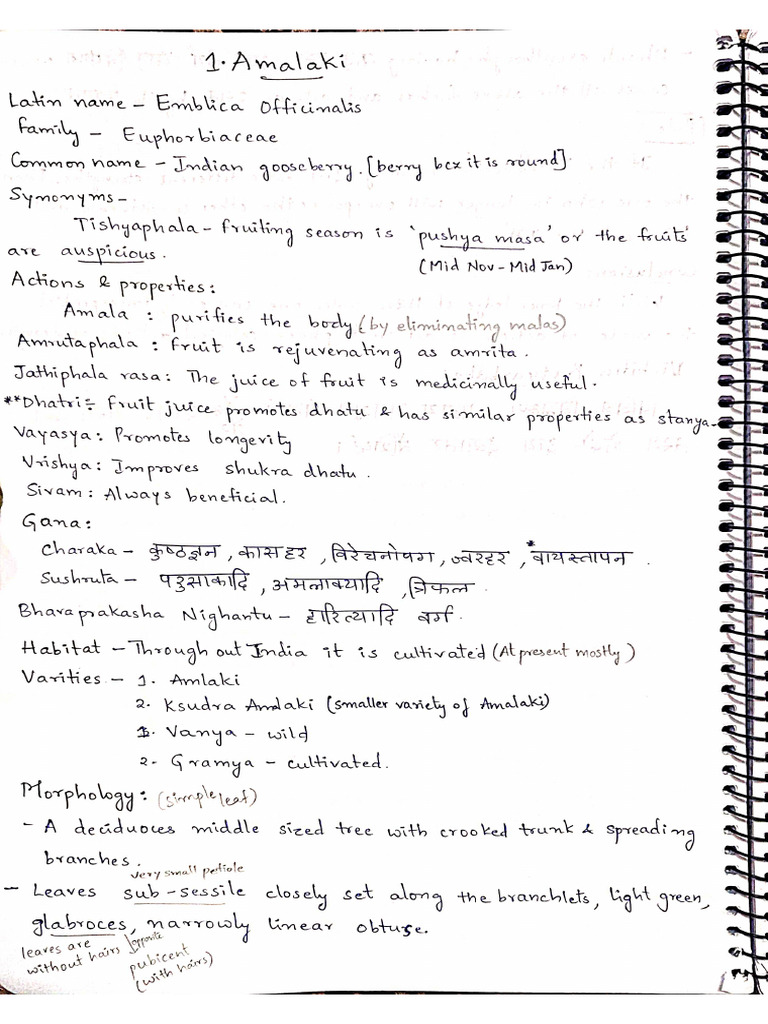 1. Amalaki
Latin name - Emblica Officinalis
Family - Euphorbiaceae
Common name - Indian gooseberry. [berry bcx it is round]
Synonyms -
Tishyaphala - fruiting season is 'pushya masa' or the fruits
are auspicious. (Mid Nov - Mid Jan)
Actions & properties:
Amala : purifies the body (by eliminating malas)
Amrutaphala : fruit is rejuvenating as amrita.
Jathiphala rasa: The juice of fruit is medicinally useful.
**Dhatri:- fruit juice promotes dhatu & has similar properties as stanya.
Vayasya: Promotes longevity
Vrishya: Improves shukra dhatu.
Sivam: Always beneficial.
Gana:
Charaka - कुष्ठज्ञन, कासहर, विरेचनोपग, ज्वरहर, *वायस्तापन.
Sushruta - परुसाकादि, अमलाक्यादि, त्रिफल.
Bharaprakasha Nighantu - हारित्यादि वर्ग.
Habitat - Through out India it is cultivated (At present mostly)
Varities - 1. Amlaki
2. Ksudra Amlaki (smaller variety of Amalaki)
1. Vanya - wild
2. Gramya - cultivated.
Morphology: (simple leaf)
- A deciduoces middle sized tree with crooked trunk & spreading
branches.
very small petiole
- Leaves sub-sessile closely set along the branchlets, light green,
glabroces, narrowly linear obtuse.
leaves are without hairs
opposite
pubicent
(with hairs)